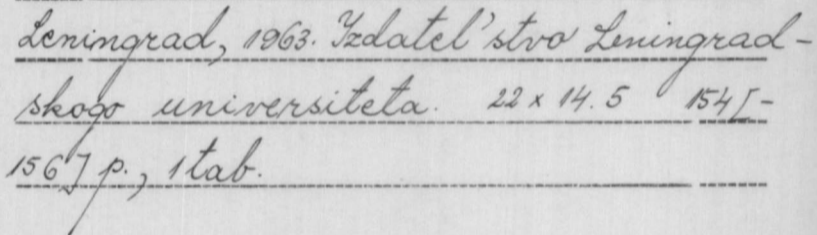 Leningrad, 1963. Izdatel'stvo Leningrad-
skogo universiteta. 22 x 14.5 154[-
156] p., 1 tab.